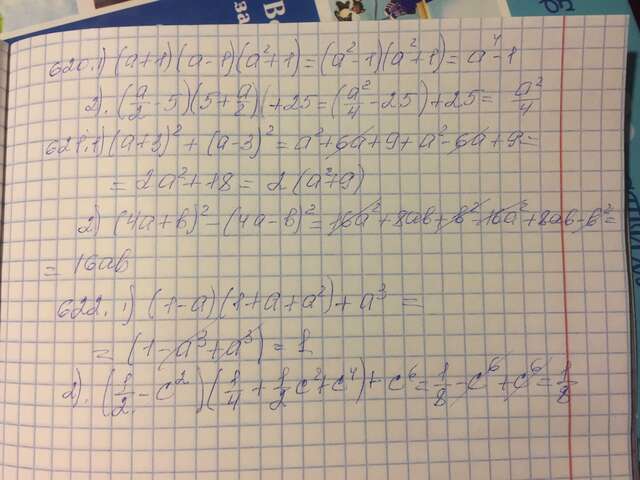 620.1) (a+1)(a-1)(a²+1)=(a²-1)(a²+1)=a⁴-1
2). (a/2-5)(5+a/2)+25=(a²/4-25)+25=a²/4
621.1) (a+3)²+(a-3)²=a²+6a+9+a²-6a+9=
=2a²+18=2(a²+9)
2) (4a+b)²-(4a-b)²=16a²+8ab+b²-16a²+8ab-b²=
=16ab
622. 1) (1-a)(1+a+a²)+a³=
=(1-a³+a³)=1
2). (1/2-c²)(1/4+1/2c²+c⁴)+c⁶=1/8-c⁶+c⁶=1/8